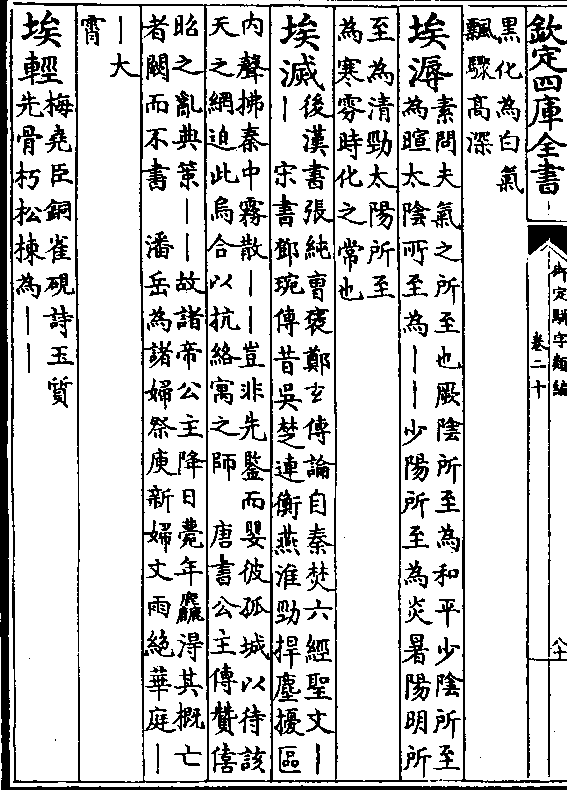 欽定四庫全書
御定駢字類編
卷二十
八十
黑化為白氣
飄驟高深
埃溽
素問夫氣之所至也厥陰所至為和平少陰所至
為暄太陰所至為丨丨少陽所至為炎暑陽明所
至為清勁太陽所至
為寒雰時化之常也
埃滅
後漢書張純曹褒鄭玄傳論自秦焚六經聖文丨
丨 宋書鄧琬傳昔吳楚連衡燕淮勁捍塵擾區
内聲拂秦中霧散丨丨豈非先鑒而嬰彼孤城以待該
天之網迫此烏合以抗絡寓之師 唐書公主傳贊僖
昭之亂典䇿丨丨故諸帝公主降日薨年麤淂其概亡
者闕而不書 潘岳為諸婦祭庾新婦文雨絶華庭丨
丨大
霄
埃輕
梅堯臣銅雀硯詩玉質
先骨朽松揀為丨丨